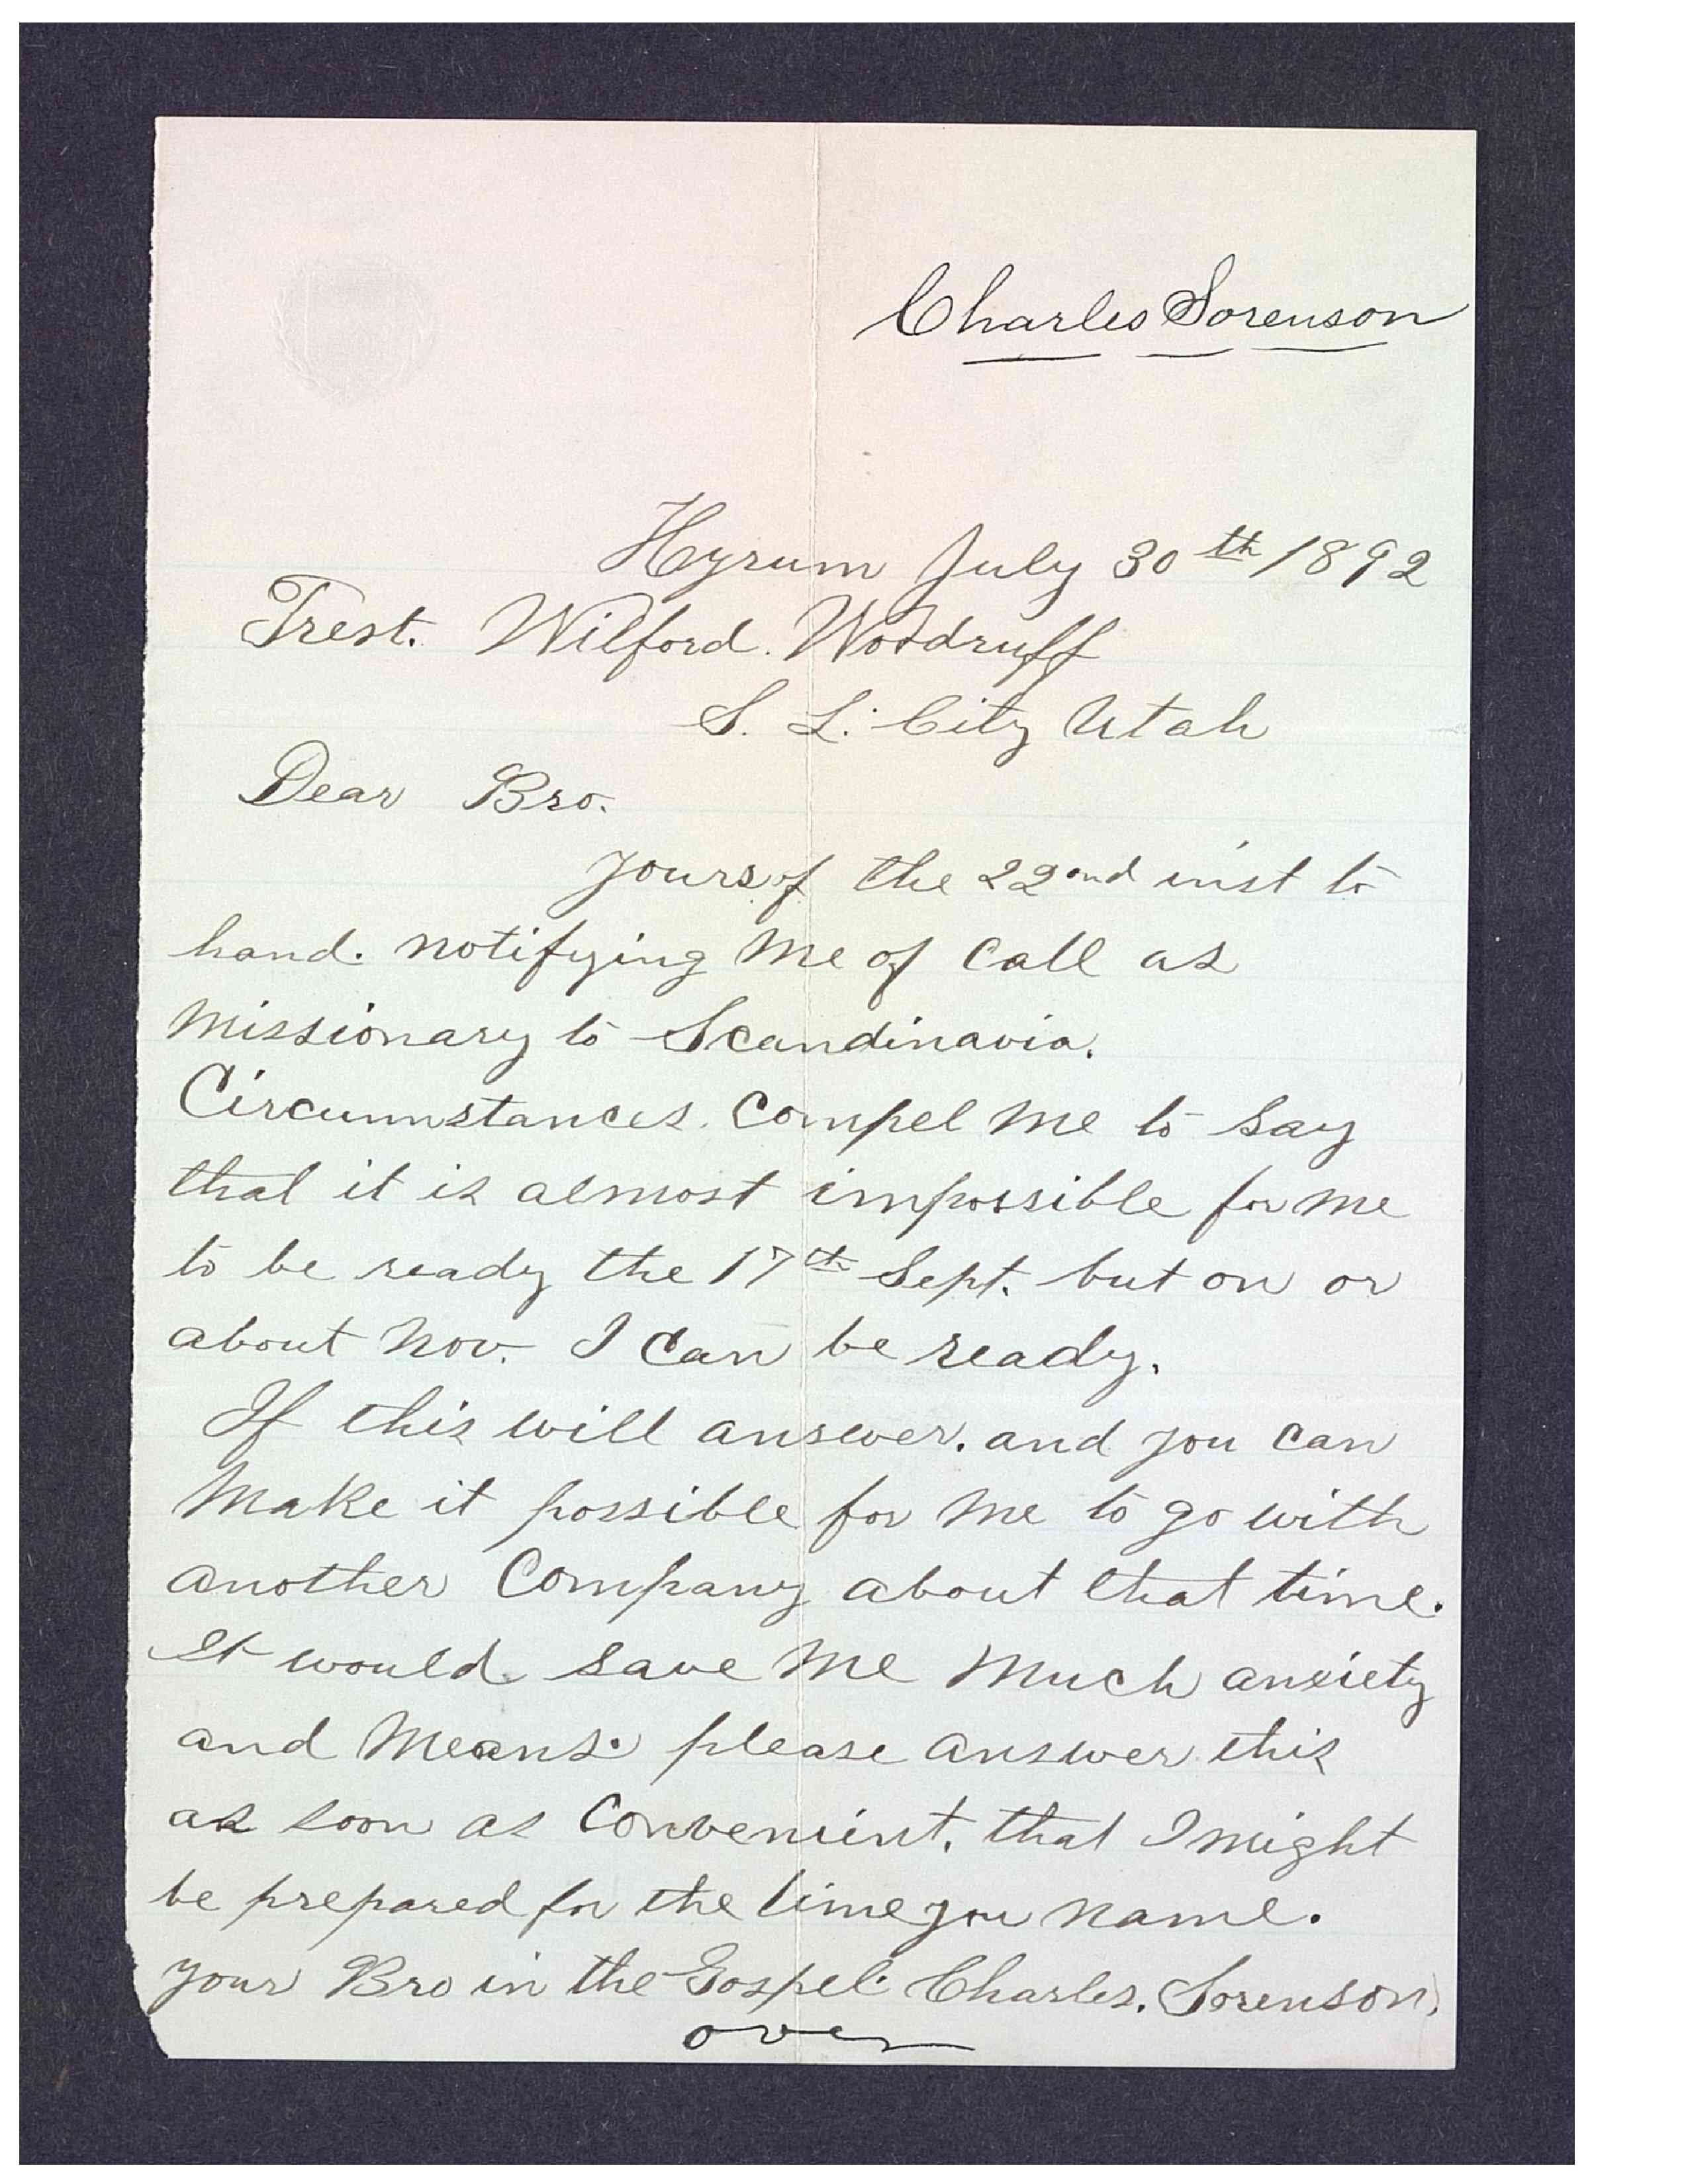 Charles Sorenson
Hyrum July 30th 1892
Prest. Wilford. Woodruff
S. L. City Utah
Dear Bro.
yours of the 22nd inst to
hand. notifying me of Call as
Missionary to Scandinavia.
Circumnstances. Compel me to say
that it is almost impossible for me
to be ready the 17th Sept. but on or
about Nov. I Can be ready.
If this will answer. and you Can
Make it possible for me to go with
another Company about that time.
It would save me Much anxiety
and Means. please answer this
as soon as Convenient. that I might
be prepared for the time you name.
your Bro in the Gospel. Charles. Sorenson.
over